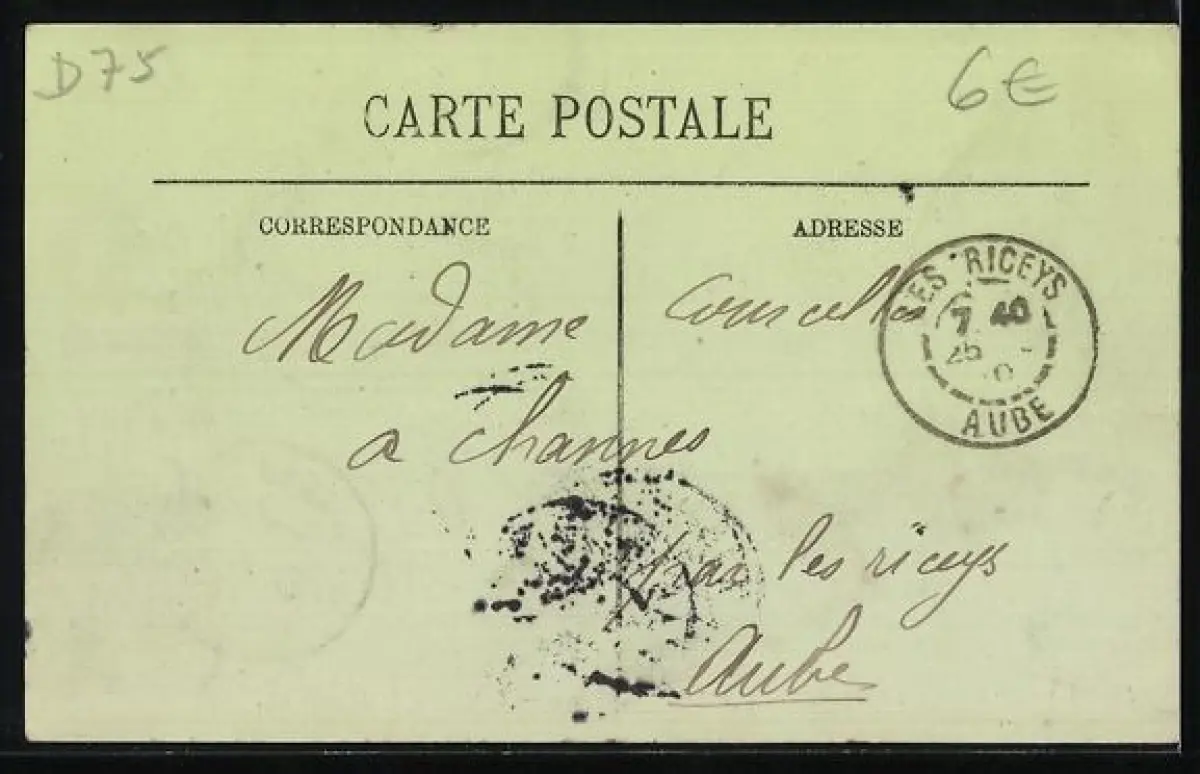 D75
6€
CARTE POSTALE
CORRESPONDANCE
ADRESSE
Madame Courcelles
a Channes
par les riceys
Aube
LES RICEYS
7 40
25
AUBE